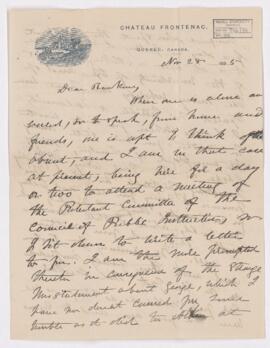 CHATEAU FRONTENAC.
QUEBEC, CANADA.
Nov 28
Dear
When one is alone and
so to speak, from home and
friends, one is apt to think
about, and I am in that case
at present, being here for a day
or two to attend a meeting of
the Protestant Committee of the
Council of Public Instruction, so
I sit down to write a letter
to you. I am the more prompted
thereto in consequence of the strange
misstatement about George, which I
have no doubt caused you
as it did to at